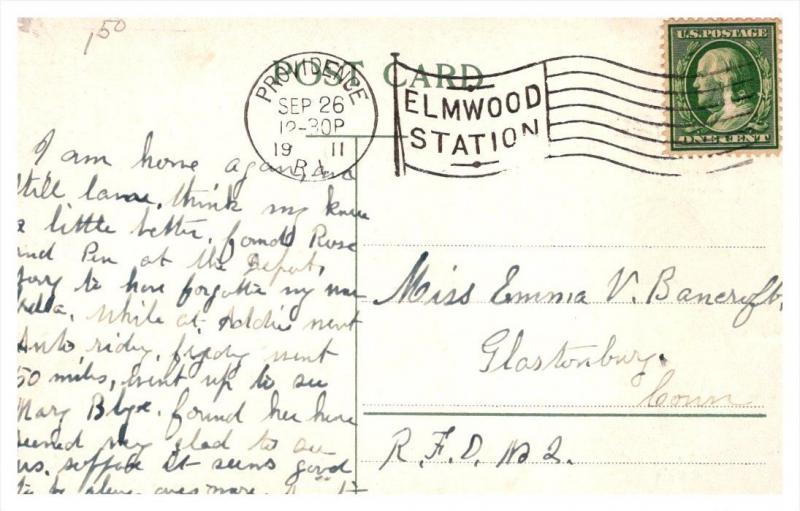 1.50
POST CARD
PROVIDENCE
SEP 26
12-30P
19 11
R.I.
ELMWOOD
STATION
U.S. POSTAGE
ONE CENT
I am home again, and
still lame, think my knee
a little better, found Rose
and Pen at the Depot,
sorry to have forgotten my um
rella, while at Addie's went
Auto riding, friday went
50 miles, went up to see
Mary Blye, found her here
seemed very glad to see
us, suppose it seems good
to be alone once more
Miss Emma V. Bancroft,
Glastonbury,
Conn
R.F.D. No 2.